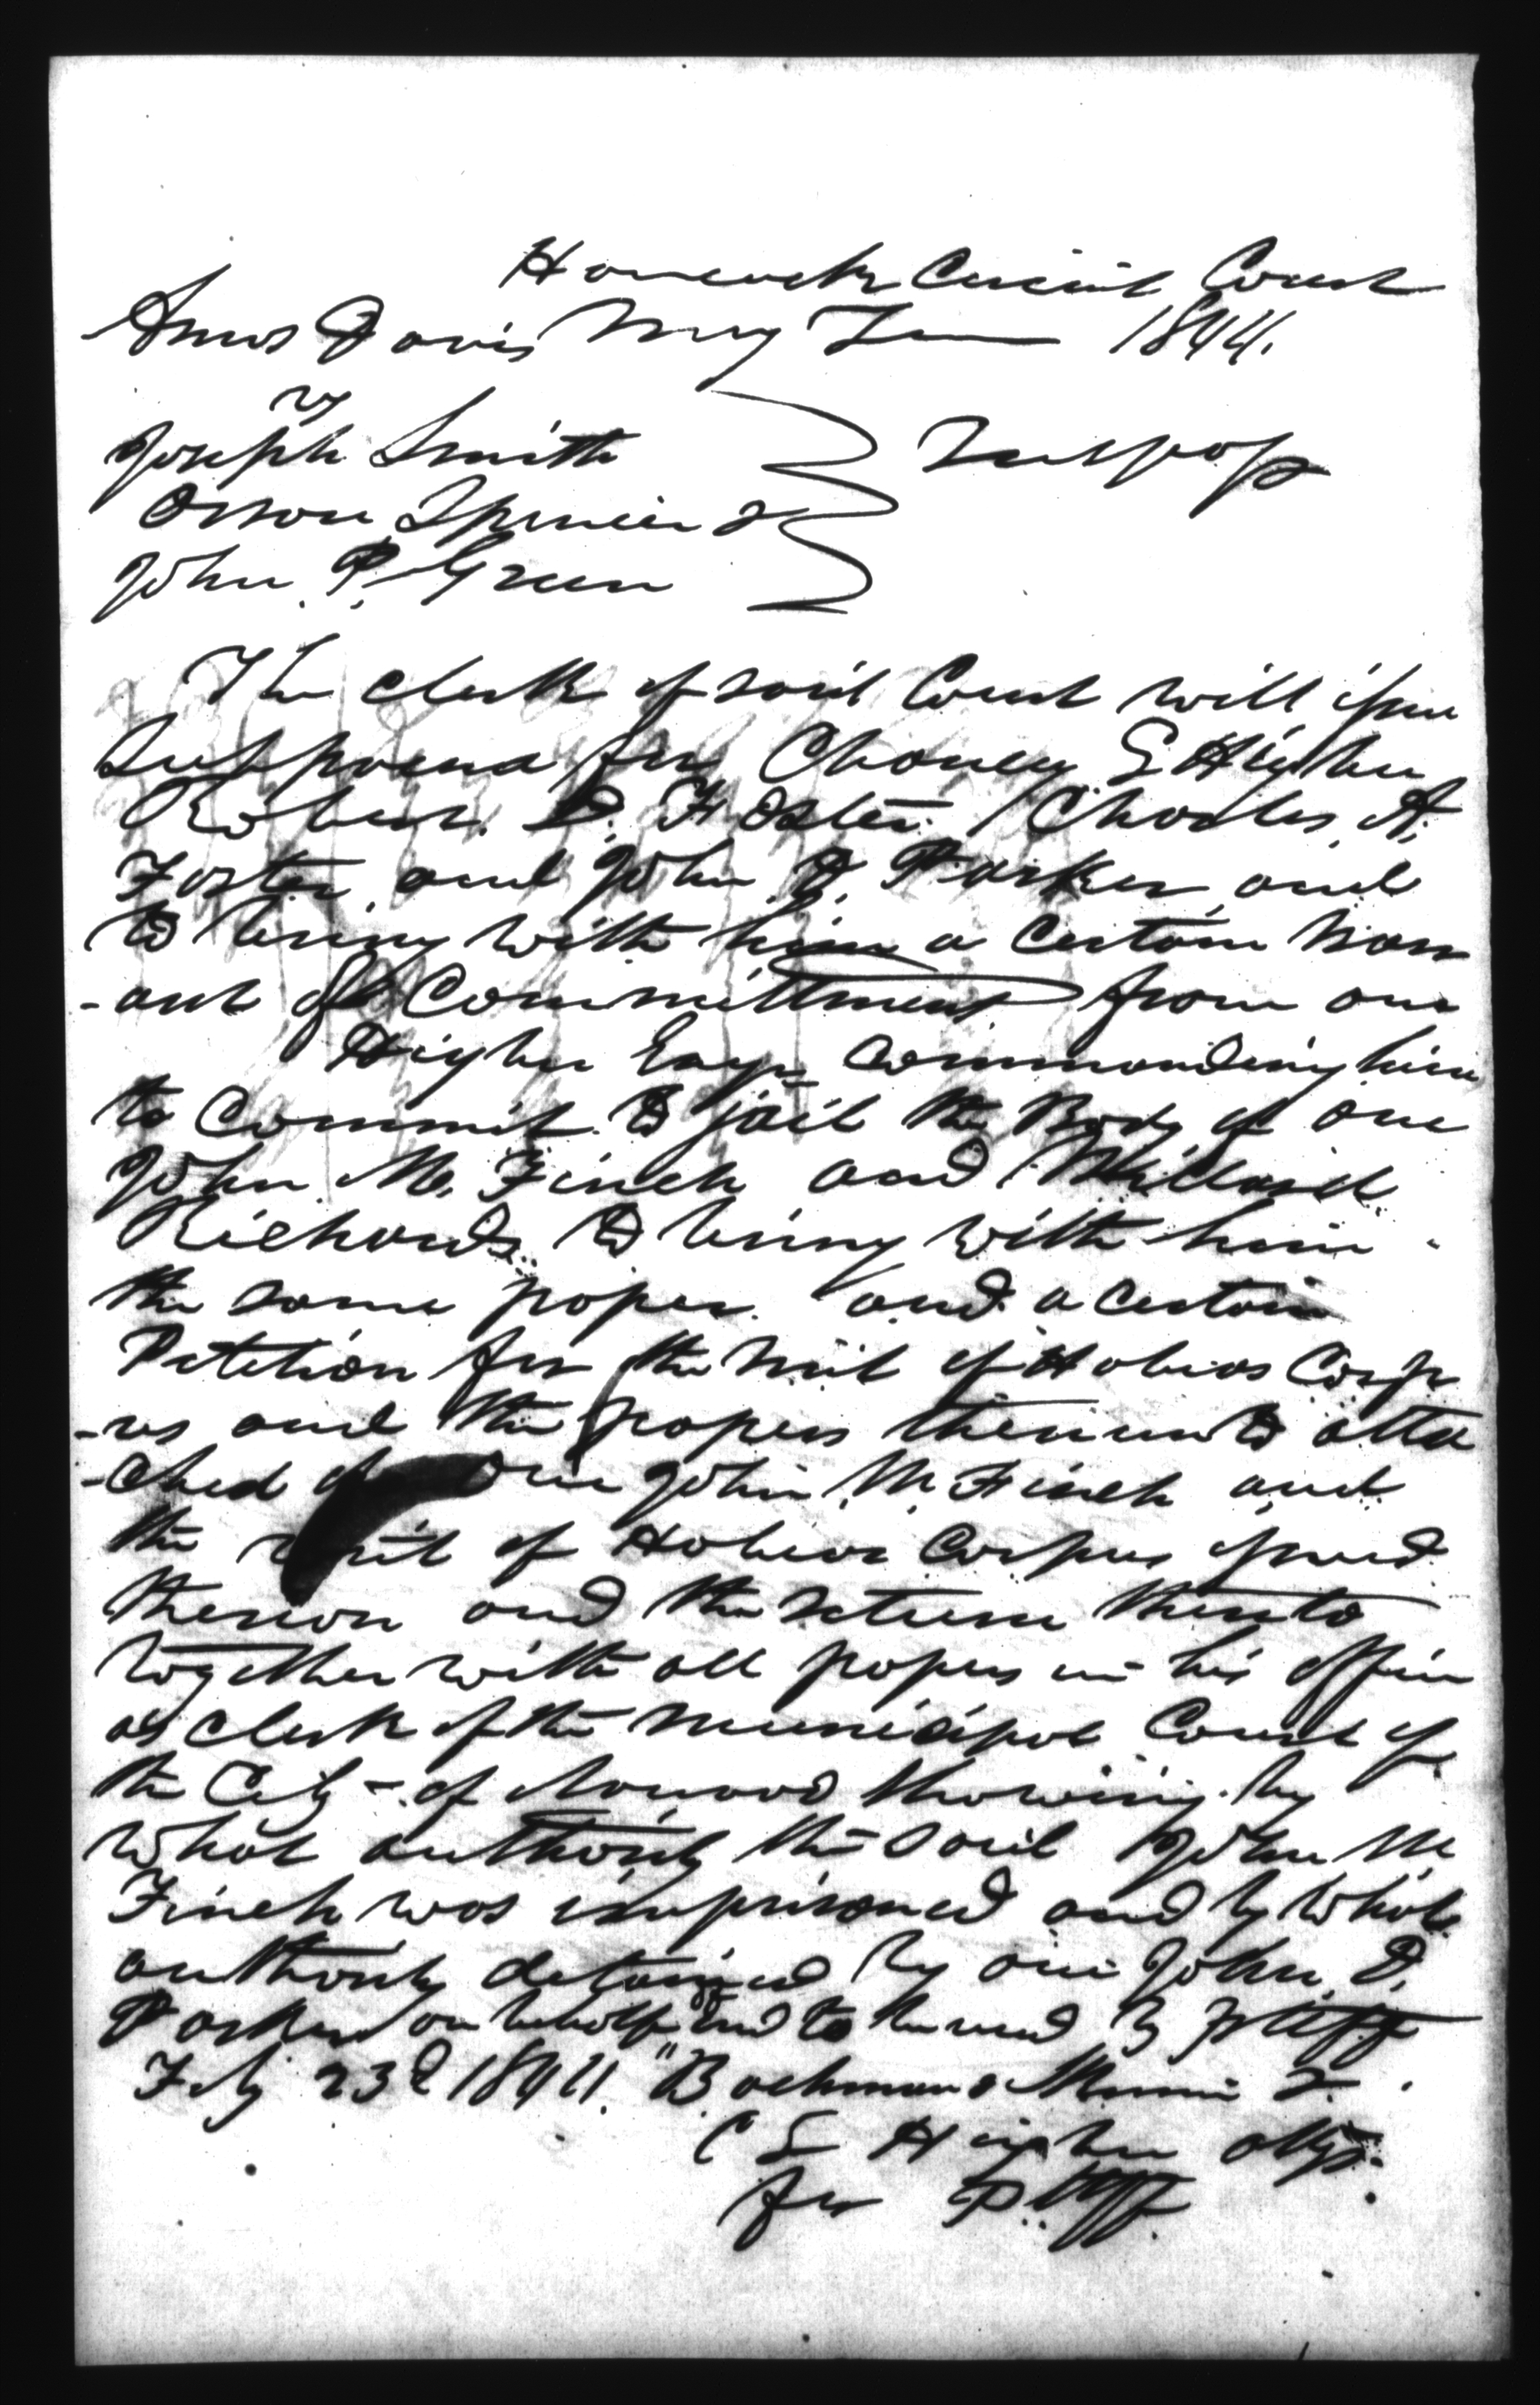 Hancock Circuit Court
Amos Davis May Term 1844.
vs
Joseph Smith
Trespass
Orson Spencer &
John P. Green
The clerk of said Court will issue
Subpoena for Chancy L Higbee
Robert. D. Foster. Charles. A.
Foster, and John D. Parker and
to bring with him a certain warr
-ant of Committment from one
Higbee Esqr commanding him
to Commit to jail the Body of one
John M. Finch and Willard
Richards to bring with him
the same paper. and a certain
Petition for the writ of Habeas Corp
-us and the papers thereunto atta
-ched of one John M. Finch and
the writ of Habeas Corpus issued
thereon and the return thereto
together with all papers in his office
as clerk of the municipal Court of
the City of Nauvoo showing by
what authority the said John M
Finch was imprisoned and by what
authority detained by one John D.
Parker on behalf and to be used by pltff
Feby 23d 1844. Bachman & Morris &
C L Higbee attys.
for Pltff.